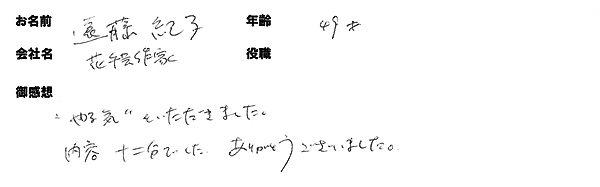 お名前 遠藤 紀子 年齢 49才
会社名 花芸作家 役職
御感想
"やる気"をいただきました。
内容 十二分でした。ありがとうございました。